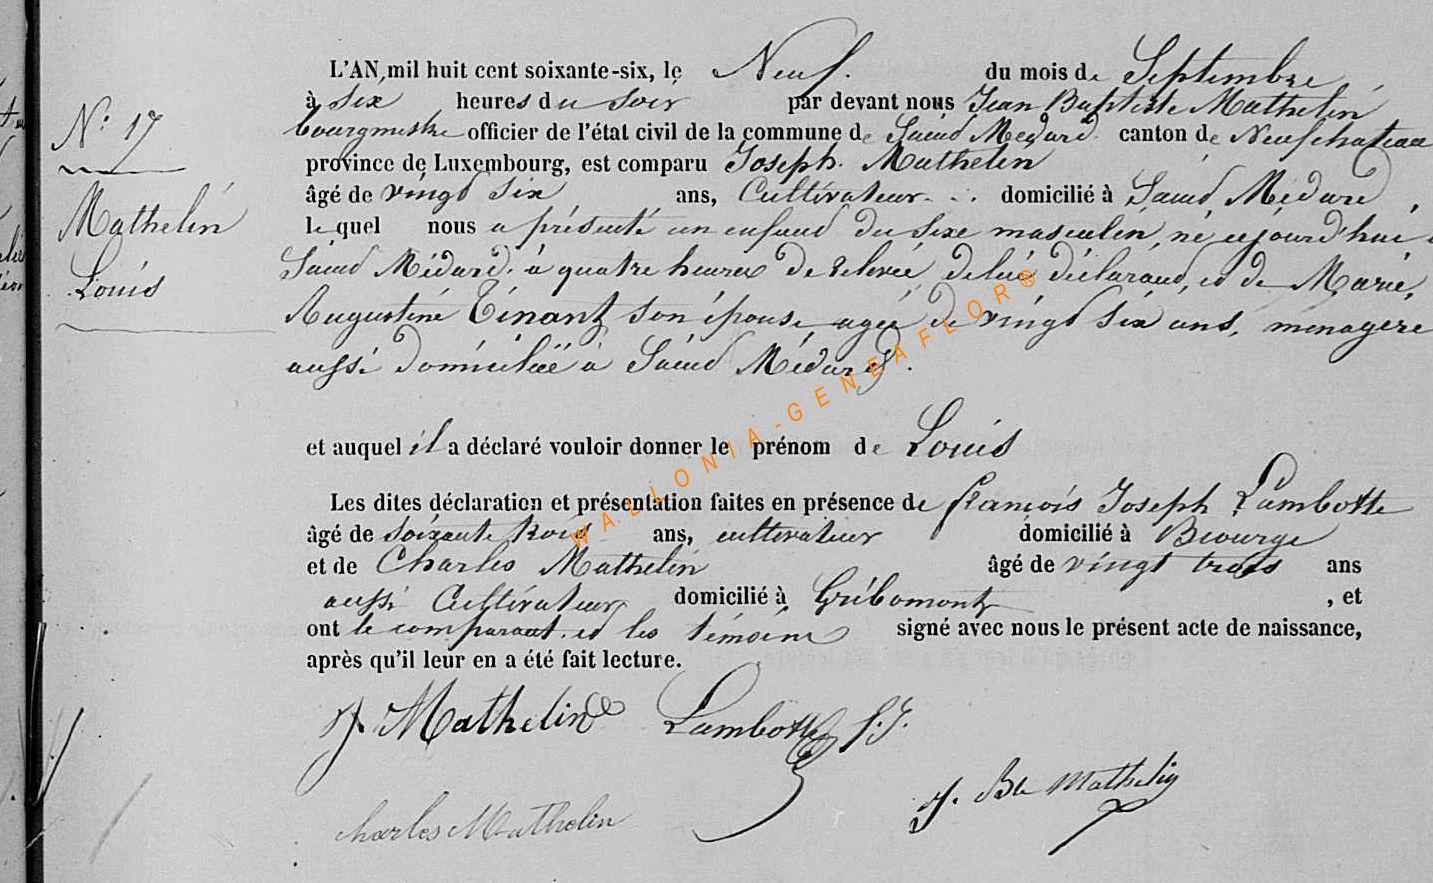 N.º 17
Mathelin
Louis
L'AN mil huit cent soixante-six, le Neuf. du mois de Septembre,
à six heures du soir par devant nous Jean Baptiste Mathelin
bourgmestre officier de l'état civil de la commune de Saint Médard canton de Neufchateau
province de Luxembourg, est comparu Joseph Mathelin
âgé de vingt six ans, Cultivateur domicilié à Saint Médard,
lequel nous a présenté un enfant du sexe masculin, né cejourd'hui à
Saint Médard à quatre heures de relevée, de lui déclarant, et de Marie,
Augustine Tinant son épouse agée de vingt six ans, ménagère
aussi domiciliée à Saint Médard.
et auquel il a déclaré vouloir donner le prénom de Louis
Les dites déclaration et présentation faites en présence de françois Joseph Lambotte
âgé de soixante trois ans, cultivateur domicilié à Biourge
et de Charles Mathelin âgé de vingt trois ans
aussi Cultivateur domicilié à Gribomont, et
ont le comparant et les témoins signé avec nous le présent acte de naissance,
après qu'il leur en a été fait lecture.
J. Mathelin Lambotte f. J.
J. Bte Mathelin
charles Mathelin
WALLONIA-GENEAFLOR®